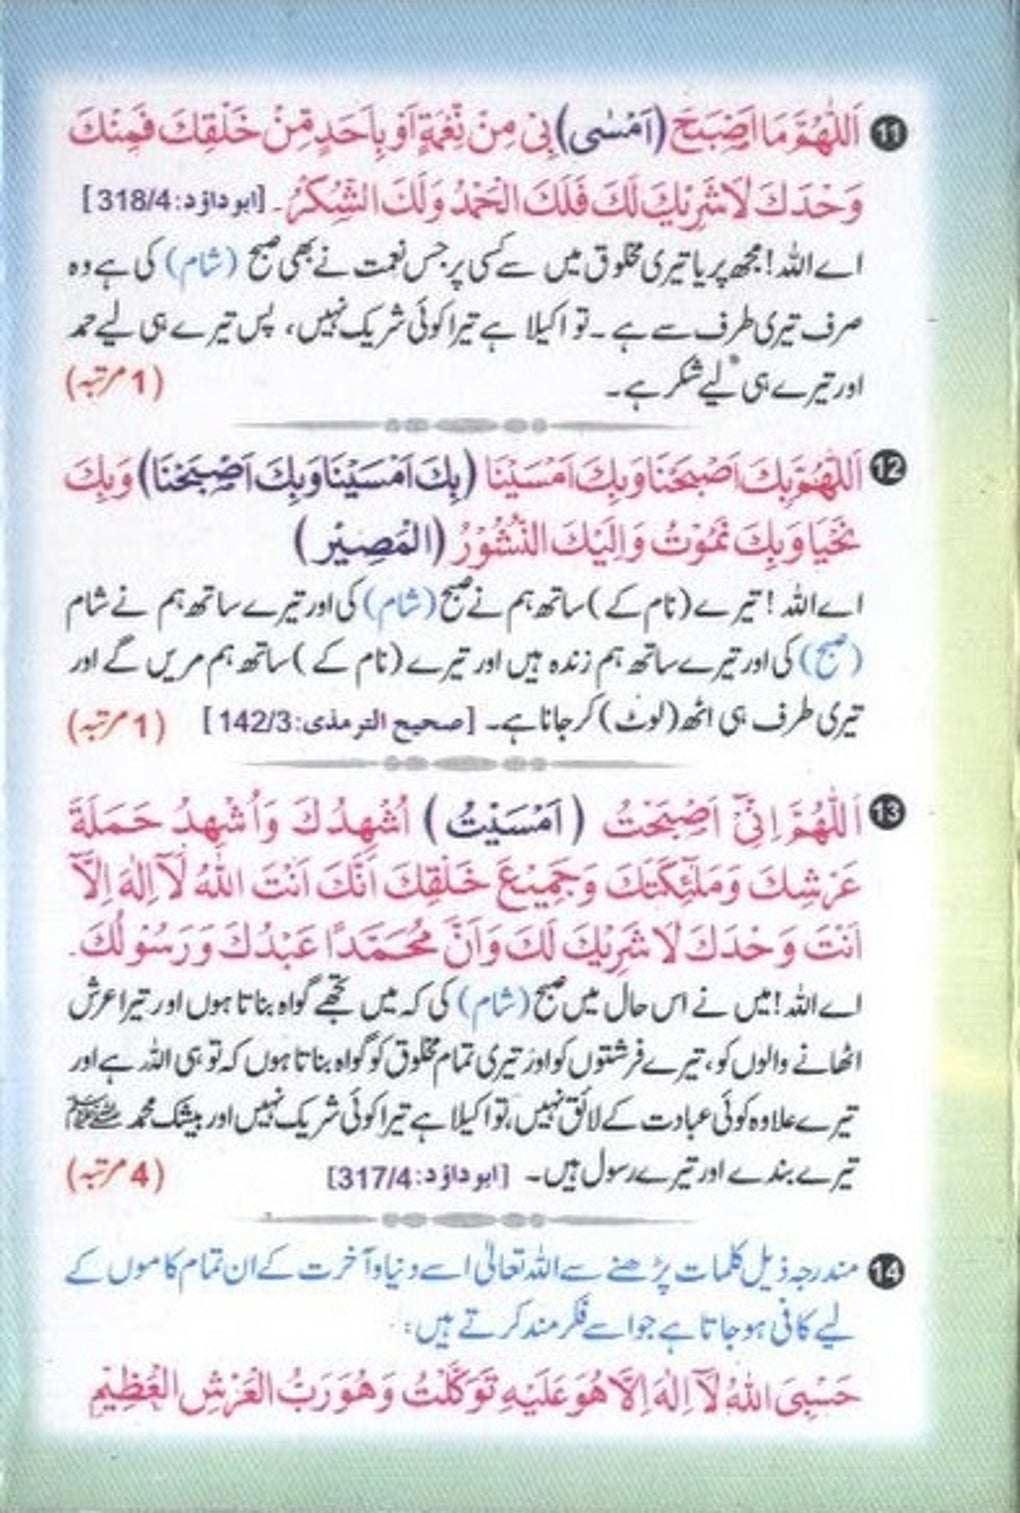 11 اَللّٰهُمَّ مَا اَصْبَحَ (اَمْسٰى) بِيْ مِنْ نِّعْمَةٍ اَوْ بِاَحَدٍ مِّنْ خَلْقِكَ فَمِنْكَ
وَحْدَكَ لَا شَرِيْكَ لَكَ فَلَكَ الْحَمْدُ وَلَكَ الشُّكْرُ۔ [ابو داؤد:318/4]
اے اللہ! مجھ پر یا تیری مخلوق میں سے کسی پر جس نعمت نے بھی صبح (شام) کی ہے وہ
صرف تیری طرف سے ہے۔ تو اکیلا ہے تیرا کوئی شریک نہیں، پس تیرے ہی لیے حمد
اور تیرے ہی لیے شکر ہے۔ (1 مرتبہ)
12 اَللّٰهُمَّ بِكَ اَصْبَحْنَا وَبِكَ اَمْسَيْنَا (بِكَ اَمْسَيْنَا وَبِكَ اَصْبَحْنَا) وَبِكَ
نَحْيَا وَبِكَ نَمُوْتُ وَاِلَيْكَ النُّشُوْرُ (الْمَصِيْر)
اے اللہ! تیرے (نام کے) ساتھ ہم نے صبح (شام) کی اور تیرے ساتھ ہم نے شام
(صبح) کی اور تیرے ساتھ ہم زندہ ہیں اور تیرے (نام کے) ساتھ ہم مریں گے اور
تیری طرف ہی اٹھ (لوٹ) کر جانا ہے۔ [صحیح الترمذی:142/3] (1 مرتبہ)
13 اَللّٰهُمَّ اِنِّيْٓ اَصْبَحْتُ (اَمْسَيْتُ) اُشْهِدُكَ وَاُشْهِدُ حَمَلَةَ
عَرْشِكَ وَمَلٰٓئِكَتَكَ وَجَمِيْعَ خَلْقِكَ اَنَّكَ اَنْتَ اللهُ لَآ اِلٰهَ اِلَّآ
اَنْتَ وَحْدَكَ لَا شَرِيْكَ لَكَ وَاَنَّ مُحَمَّدًا عَبْدُكَ وَرَسُوْلُكَ۔
اے اللہ! میں نے اس حال میں صبح (شام) کی کہ میں تجھے گواہ بناتا ہوں اور تیرا عرش
اٹھانے والوں کو، تیرے فرشتوں کو اور تیری تمام مخلوق کو گواہ بناتا ہوں کہ تو ہی اللہ ہے اور
تیرے علاوہ کوئی عبادت کے لائق نہیں، تو اکیلا ہے تیرا کوئی شریک نہیں اور بیشک محمد ﷺ
تیرے بندے اور تیرے رسول ہیں۔ [ابو داؤد:317/4] (4 مرتبہ)
14 مندرجہ ذیل کلمات پڑھنے سے اللہ تعالیٰ اسے دنیا و آخرت کے ان تمام کاموں کے
لیے کافی ہو جاتا ہے جو اسے فکر مند کرتے ہیں:
حَسْبِيَ اللهُ لَآ اِلٰهَ اِلَّا هُوَ عَلَيْهِ تَوَكَّلْتُ وَهُوَ رَبُّ الْعَرْشِ الْعَظِيْمِ